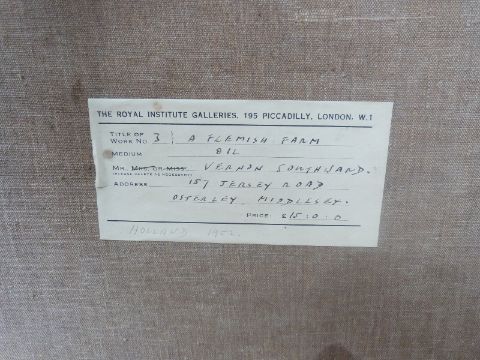 THE ROYAL INSTITUTE GALLERIES, 195 PICCADILLY, LONDON, W.1
TITLE OF WORK NO. 3 A FLEMISH FARM
MEDIUM OIL
MR. MRS. OR MISS. VERNON SOUTHWARD.
(PLEASE DELETE AS NECESSARY)
ADDRESS 157 JERSEY ROAD
OSTERLEY MIDDLESEX.
PRICE £15:0:0
HOLLAND 1952.